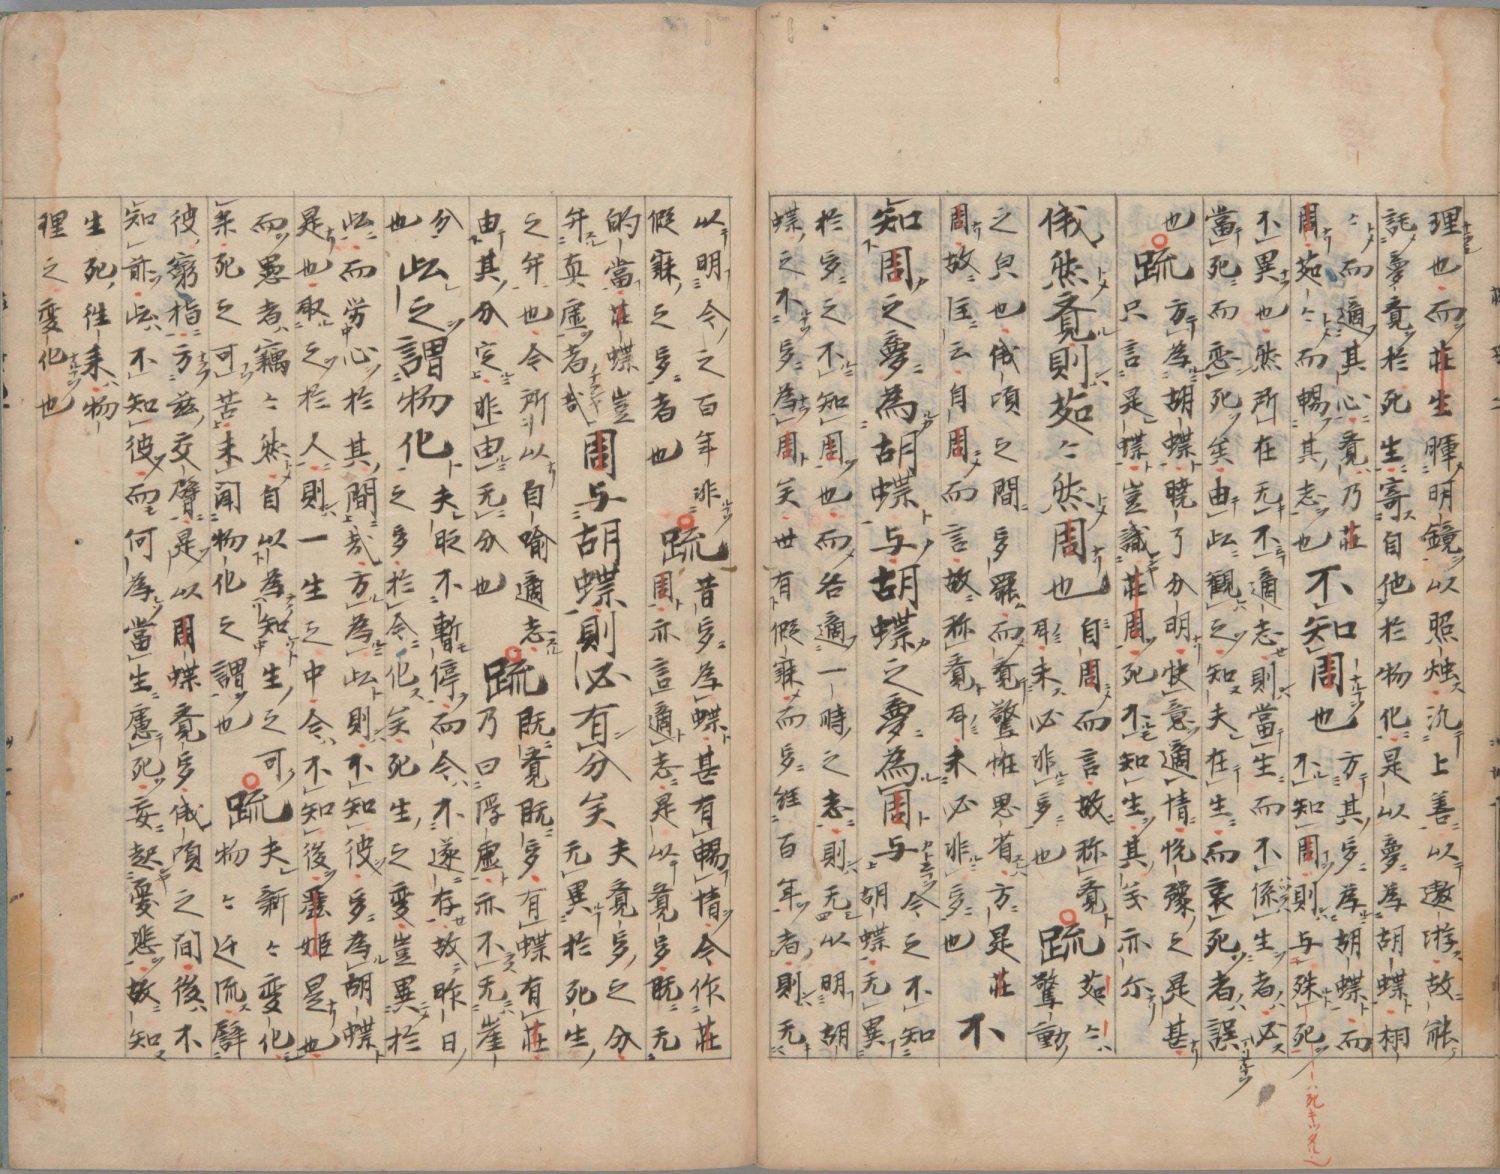 理也而莊生暉明鏡以照燭汎上善以遨游故能
託夢覺於死生寄自他於物化是以夢為胡蝶栩
々而適其心覺乃莊
周茹々而暢其志也
不知周也
方其夢為胡蝶而
不知周則与殊死
不異也然所在无不適志則當生而不係生者必
當死而恋死矣由此観之知夫在生而哀死者誤
也
疏
方為胡蝶曉了分明快意適情悅豫之是甚
只言是蝶豈識莊周死不知生其義亦尓
俄然覺則茹々然周也
自周而言故称覺
耳未必非夢也
疏
茹々
驚動
之皃也俄頃之間夢罷而覺驚怪思省方是莊
周故注云自周而言故称覺耳未必非夢也
不
知周之夢為胡蝶与胡蝶之夢為周与
今之不知
胡蝶无異
於夢之不知周也而各適一時之志則无以明胡
蝶之不夢為周矣世有假寐而夢經百年者則无
以明今之百年非
假寐之夢者也
疏
昔夢為蝶甚有暢情今作莊
周亦言適志是以覺夢既无
的當莊蝶豈
弁真虚者哉
周与胡蝶則必有分矣
夫覺夢之分
无異於死生
之弁也今所以自喻適志
由其分定非由无分也
疏
既覺既夢有蝶有莊
乃曰浮虚亦不无崖
分
也
此之謂物化
夫時不暫停而今不遂存故昨日
之夢於今化矣死生之變豈異於
此而労心於其間哉方為此則不知彼夢為胡蝶
是也取之於人則一生之中今不知後麗姬是也
而愚者竊々然自以為知生之可
樂死之可苦未聞物化之謂也
疏
夫新々變化
物々迁流譬
彼窮指方茲交臂是以周蝶覺夢俄頃之間後不
知前此不知彼而何為當生慮死妄起憂悲故知
生死往來物
理之變化也